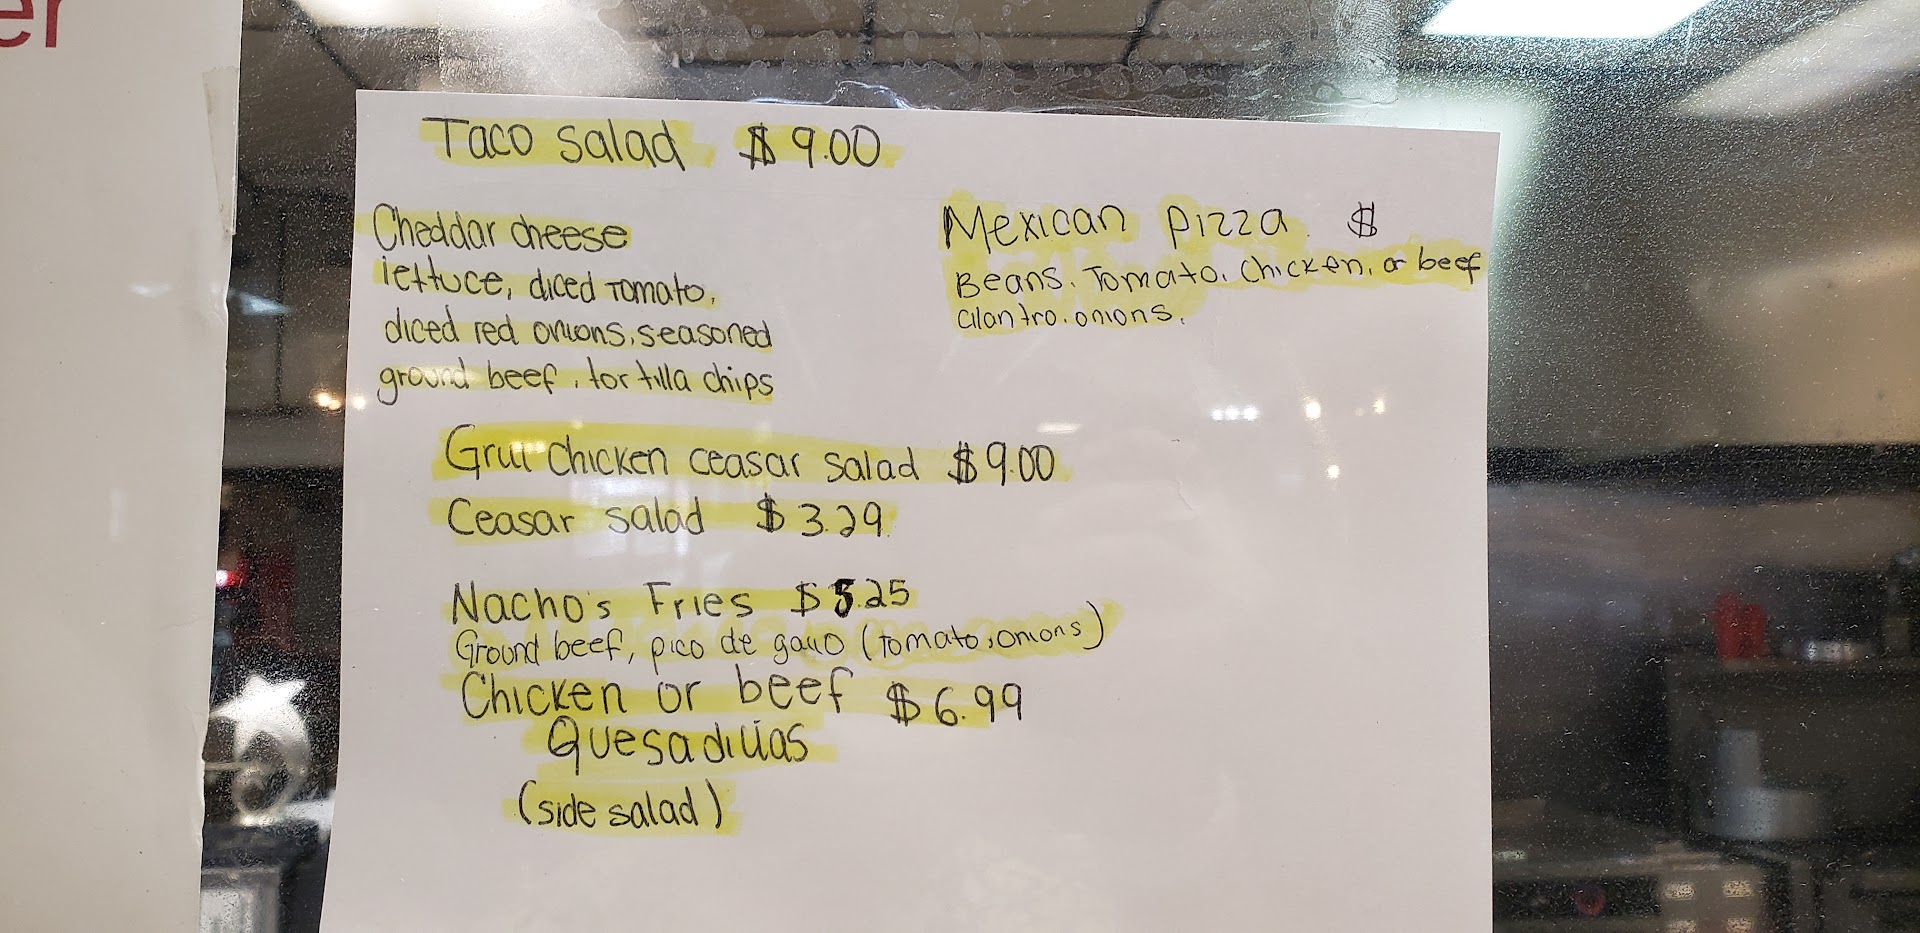 er
Taco salad $9.00
Cheddar cheese
lettuce, diced Tomato,
diced red onions, seasoned
ground beef, tortilla chips
Mexican Pizza $
Beans. Tomato. Chicken, or beef
cilantro. onions.
Grill chicken ceasar salad $9.00
Ceasar salad $3.29
Nacho's Fries $5.25
Ground beef, pico de gallo (Tomato, onions)
Chicken or beef $6.99
Quesadillas
(side salad)